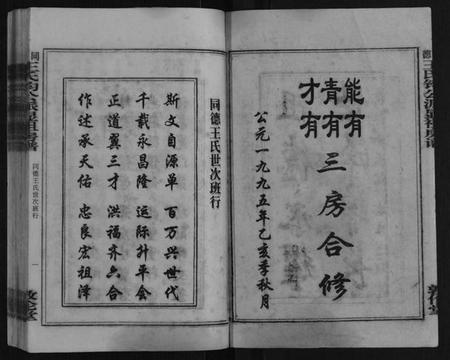 能有
青有
才有
三房合修
公元一九九五年乙亥季秋月
同德王氏世次班行
斯文自源单 百万兴世代
千载永昌隆 运际升平会
正道冀三才 洪福齐六合
作述承天佑 忠良宏祖泽
同德王氏世次班行
一